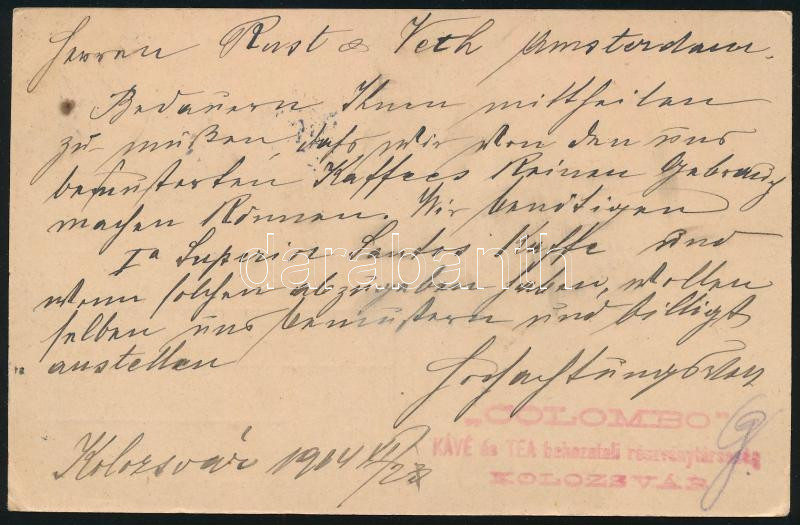 Herren Rust & Veth Amsterdam.
Bedauern Ihnen mittheilen
zu müßen, daß wir von den uns
bemusterten Kaffees keinen Gebrauch
machen können. Wir benötigen
Iª Superior Santos Kaffe und
wenn solchen abzugeben haben, wollen
selben uns bemustern und billigt
anstellen
Hochachtungsvoll
„COLOMBO"
KÁVÉ és TEA behozatali részvénytársaság
KOLOZSVÁR
Kolozsvár 1904
darabanth